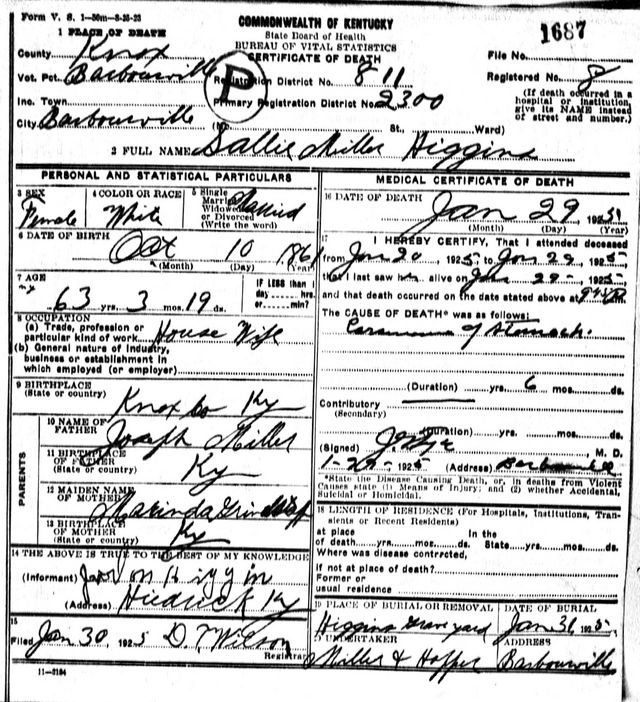 Form V. S. 1—50m—8-25-23
COMMONWEALTH OF KENTUCKY
State Board of Health
BUREAU OF VITAL STATISTICS
CERTIFICATE OF DEATH
1687
1 PLACE OF DEATH
County Knox
File No.
Vot. Pct. Barbourville
Registration District No. 811
Registered No. 8
P
Inc. Town
Primary Registration District No. 2300
(If death occurred in a hospital or institution, give its NAME instead of street and number.)
City Barbourville (No St., Ward)
2 FULL NAME Sallie Miller Higgins
PERSONAL AND STATISTICAL PARTICULARS
3 SEX
Female
4 COLOR OR RACE
White
5 Single
Married
Widowed
or Divorced
(Write the word)
Married
6 DATE OF BIRTH
Oct 10 1861
(Month) (Day) (Year)
7 AGE
63 yrs. 3 mos. 19 ds.
IF LESS than 1
day hrs.
or min.?
8 OCCUPATION
(a) Trade, profession or
particular kind of work House Wife
(b) General nature of industry,
business or establishment in
which employed (or employer)
9 BIRTHPLACE
(State or country)
Knox Co Ky
PARENTS
10 NAME OF
FATHER
Joseph Miller
11 BIRTHPLACE
OF FATHER
(State or country)
Ky
12 MAIDEN NAME
OF MOTHER
13 BIRTHPLACE
OF MOTHER
(State or country)
Ky
14 THE ABOVE IS TRUE TO THE BEST OF MY KNOWLEDGE
(Informant)
(Address) Hedrick Ky
15
Filed Jan 30 1925 D. Wilson
Registrar
11—3184
MEDICAL CERTIFICATE OF DEATH
16 DATE OF DEATH
Jan 29, 192
(Month) (Day) (Year)
17
I HEREBY CERTIFY, That I attended deceased
from Jan 20, 1925 to Jan 29, 1925
that I last saw h alive on Jan 29 1925
and that death occurred on the date stated above at
The CAUSE OF DEATH* was as follows:
of Stomach.
(Duration) yrs. 6 mos. ds.
Contributory
(Secondary)
(Duration) yrs. mos. ds.
(Signed) M. D.
1-29- 1925 (Address) Barbourville
*State the Disease Causing Death, or, in deaths from Violent
Causes state (1) Means of Injury; and (2) whether Accidental,
Suicidal or Homicidal.
18 LENGTH OF RESIDENCE (For Hospitals, Institutions, Tran-
sients or Recent Residents)
at place In the
of death yrs. mos. ds. State yrs. mos. ds.
Where was disease contrcted,
if not at place of death?
Former or
usual residence
19 PLACE OF BURIAL OR REMOVAL
Higgins Grave yard
DATE OF BURIAL
Jan 31 1925
UNDERTAKER
Miller & Hopper
ADDRESS
Barbourville